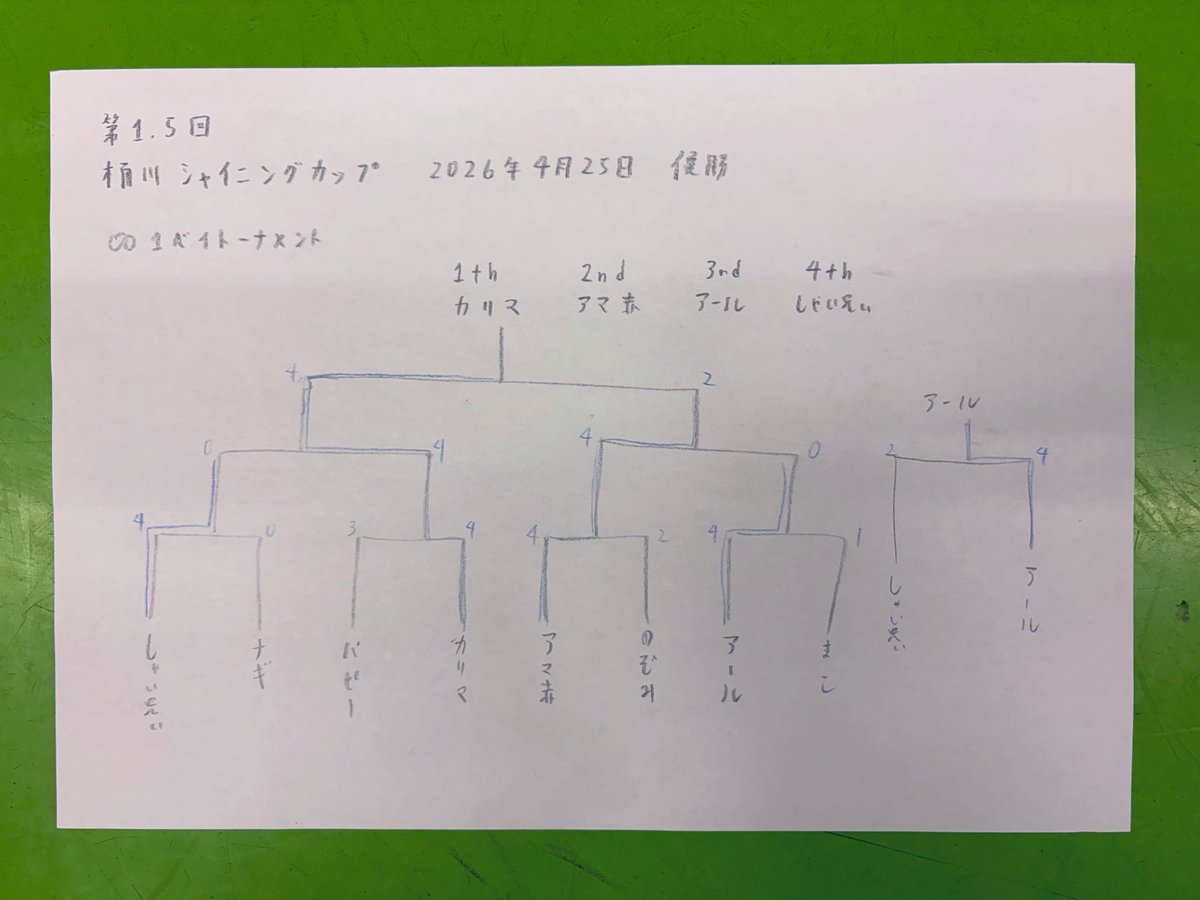 第1.5回
桶川 シャイニングカップ 2026年4月25日 優勝
∞ 1ベイトーナメント
1th 2nd 3nd 4th
カリマ アマ赤 アール
アール
2
0 4 4 0 2 4
4 0 3 4 4 2 4 1
ナギ バビー カリマ アマ赤 のぞみ アール まこ アール